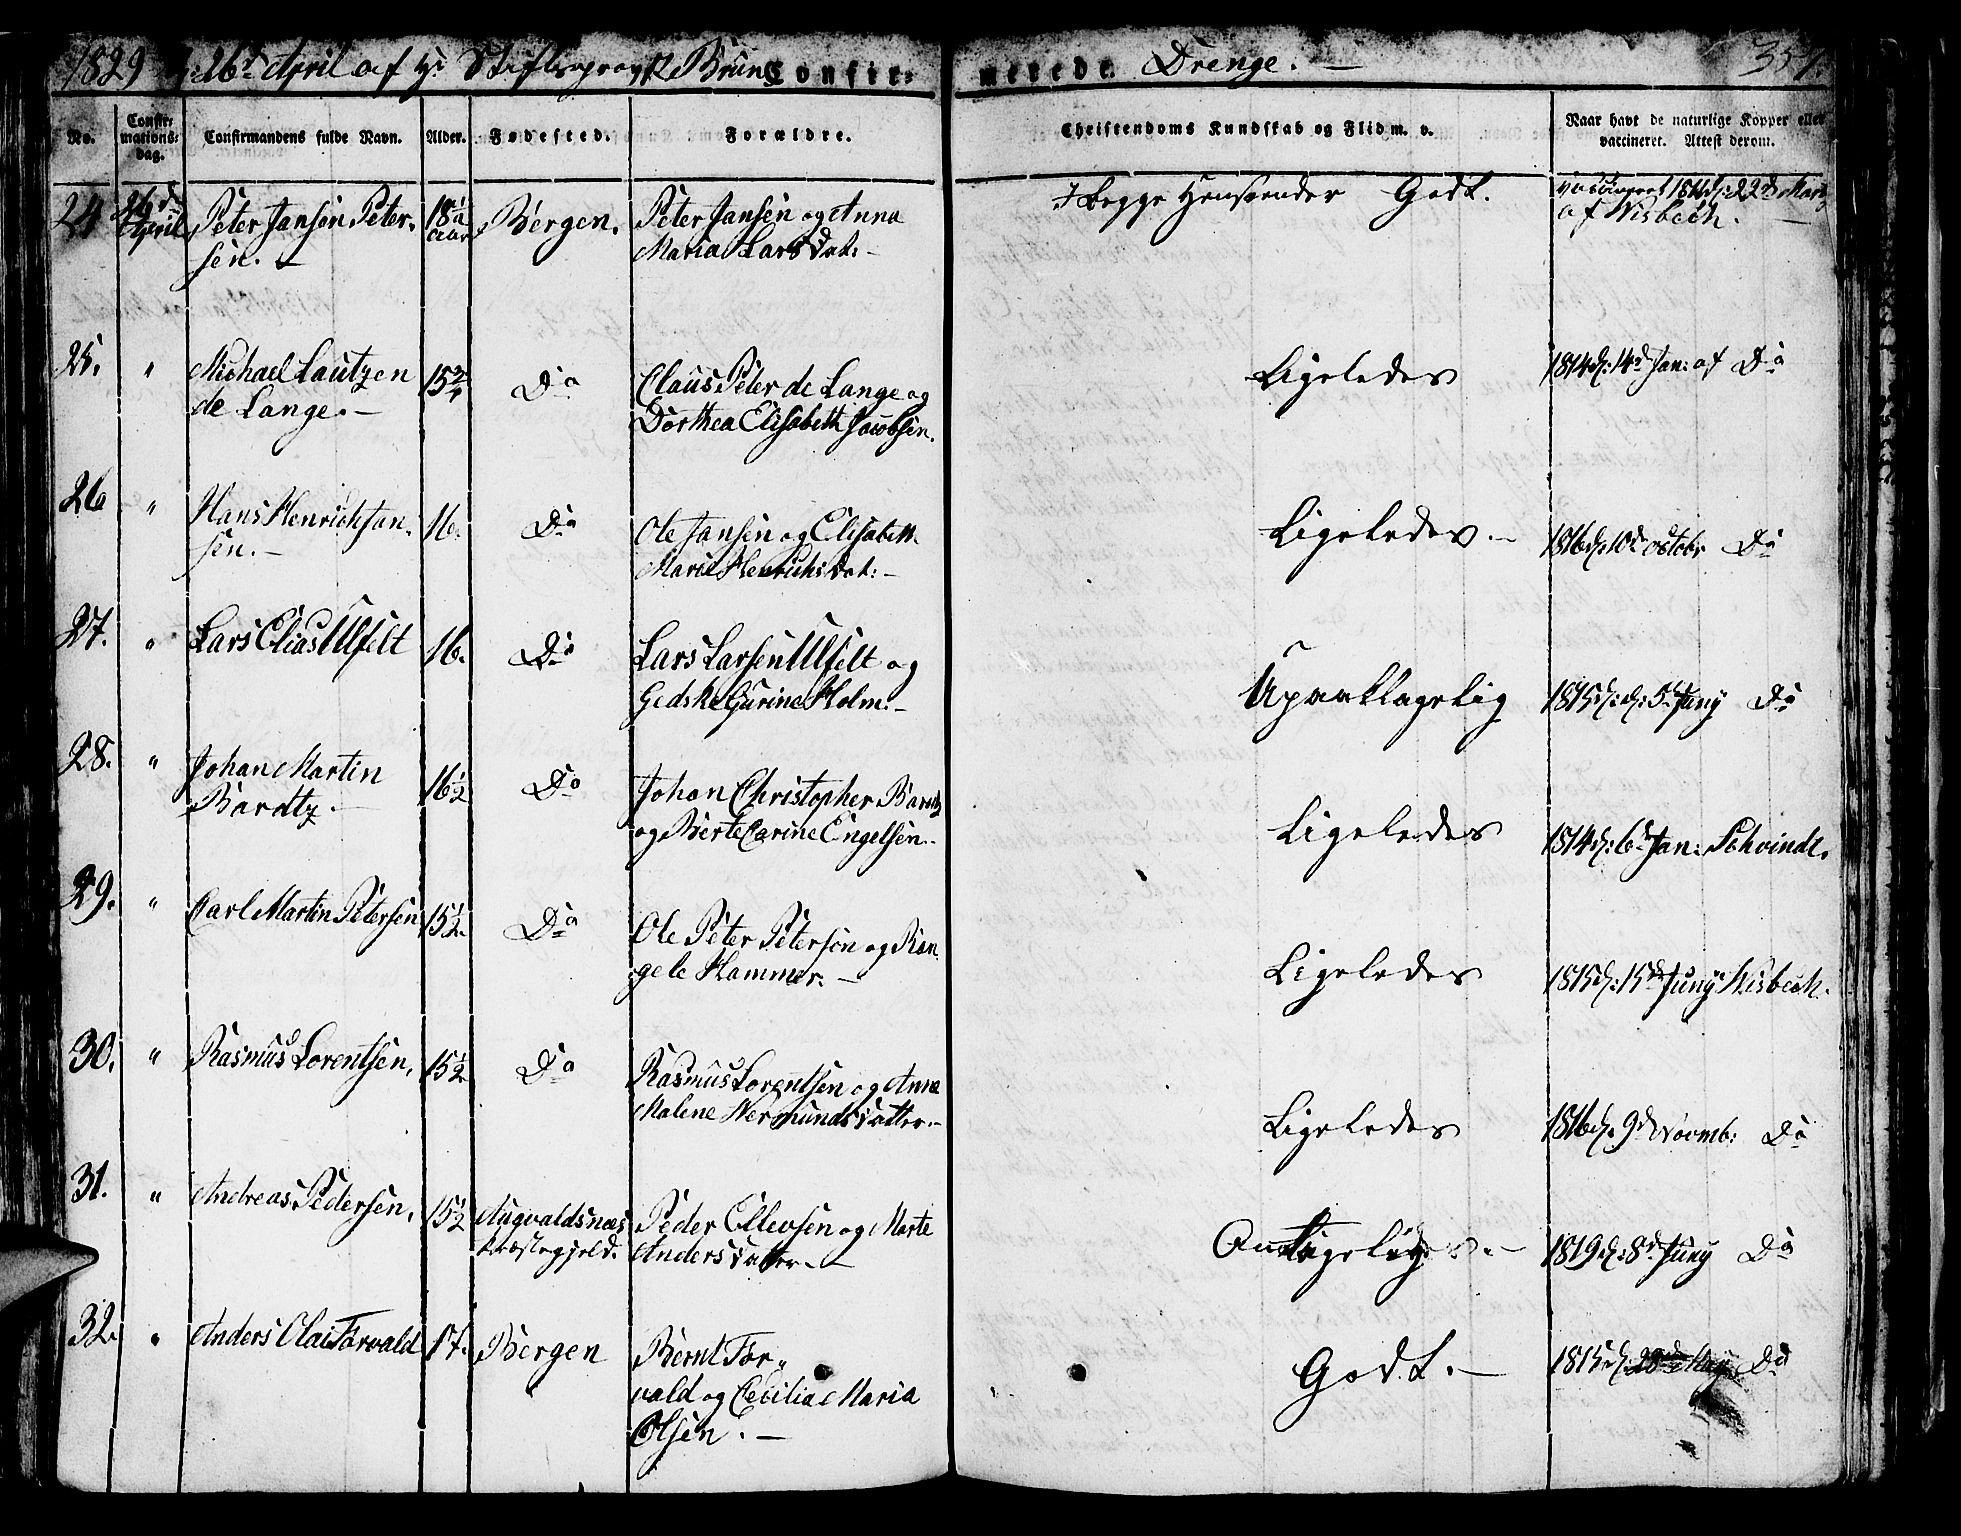 1829 d: 26d April af Hr Stiftsprovst Brun Confir-
merede Drenge. —
No.
Confir-
mations-
dag.
Confirmandens fulde Navn.
Alder.
Fødested.
Forældre.
Christendoms Kundskab og Flid m. v.
Naar havt de naturlige Kopper eller
vaccineret. Attest derom.
24 26d April Peter Jansen Peter-
sen. —
18 aar Bergen. Peter Jansen og Anna
Maria Larsdat: —
I begge Henseender Godt. vaccineret d: 22d Marz
af Wisbech. —
25. " Michael Lautzen
de Lange. —
15 Do Claus Peter de Lange og
Dorthea Elisabeth Jacobsen.
Ligeledes 1814 d: 14d Jan: af Do
26 " Hans Henrich Jan-
sen. —
16. Do Ole Jansen og Elisabeth
Marie Henrichsdat: —
Ligeledes. — 1816 d: 10d octobr Do
27. " Lars Elias Ulfelt 16. Do Lars Larsen Ulfelt og
Gedske Gurine Holm. —
Upaaklagelig 1815 d: 5d Juny Do
28. " Johan Martin
Bardtz. —
16½ Do Johan Christopher Bardtz
og Berte Carine Engelsen. -
Ligeledes 1814 d: 6d Jan: Schvindt.
29. " Carl Martin Petersen 15½ Do Ole Peter Petersen og Ran
gele Hammer. —
Ligeledes 1815 d: 15d Juny Wisbech.
30. " Rasmus Lorentsen, 15½ Do Rasmus Lorentsen og Anne
Malene Hermundsdatter. -
Ligeledes 1816 d: 9d Novmb: Do
31. " Andreas Pedersen, 15½ Augvaldsnæs
Præstegjeld. Peder Ellevsen og Marte
Andersdatter. —
1819 d: 8d Juny Do
32. " Anders Olai Forvald 17. Bergen Bernt For-
vald og Cecilia Maria
Olsen. —
Godt. — 1815 d: 28d May Do